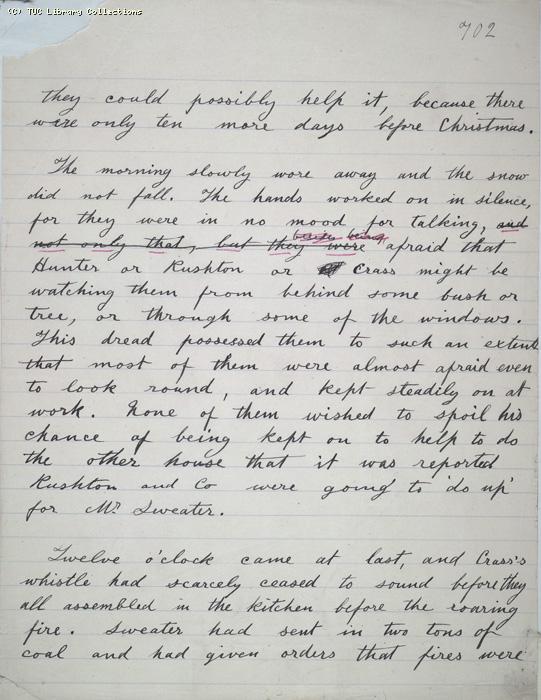 (C) TUC Library Collections
702
they could possibly help it, because there
were only ten more days before Christmas.
The morning slowly wore away and the snow
did not fall. The hands worked on in silence,
for they were in no mood for talking, and
being
not only that, but they were afraid that
Hunter or Rushton or Crass might be
watching them from behind some bush or
tree, or through some of the windows.
This dread possessed them to such an extent
that most of them were almost afraid even
to look round, and kept steadily on at
work. None of them wished to spoil his
chance of being kept on to help to do
the other house that it was reported
Rushton and Co were going to 'do up'
for Mr Sweater.
Twelve o'clock came at last, and Crass's
whistle had scarcely ceased to sound before they
all assembled in the kitchen before the roaring
fire. Sweater had sent in two tons of
coal and had given orders that fires were